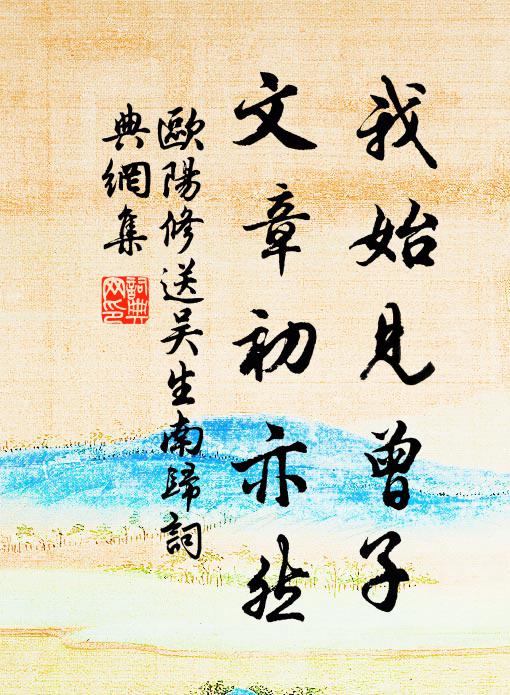 我始見曾子
文章初亦然
歐陽修送吳生南歸詞
典網集
詞典
网印